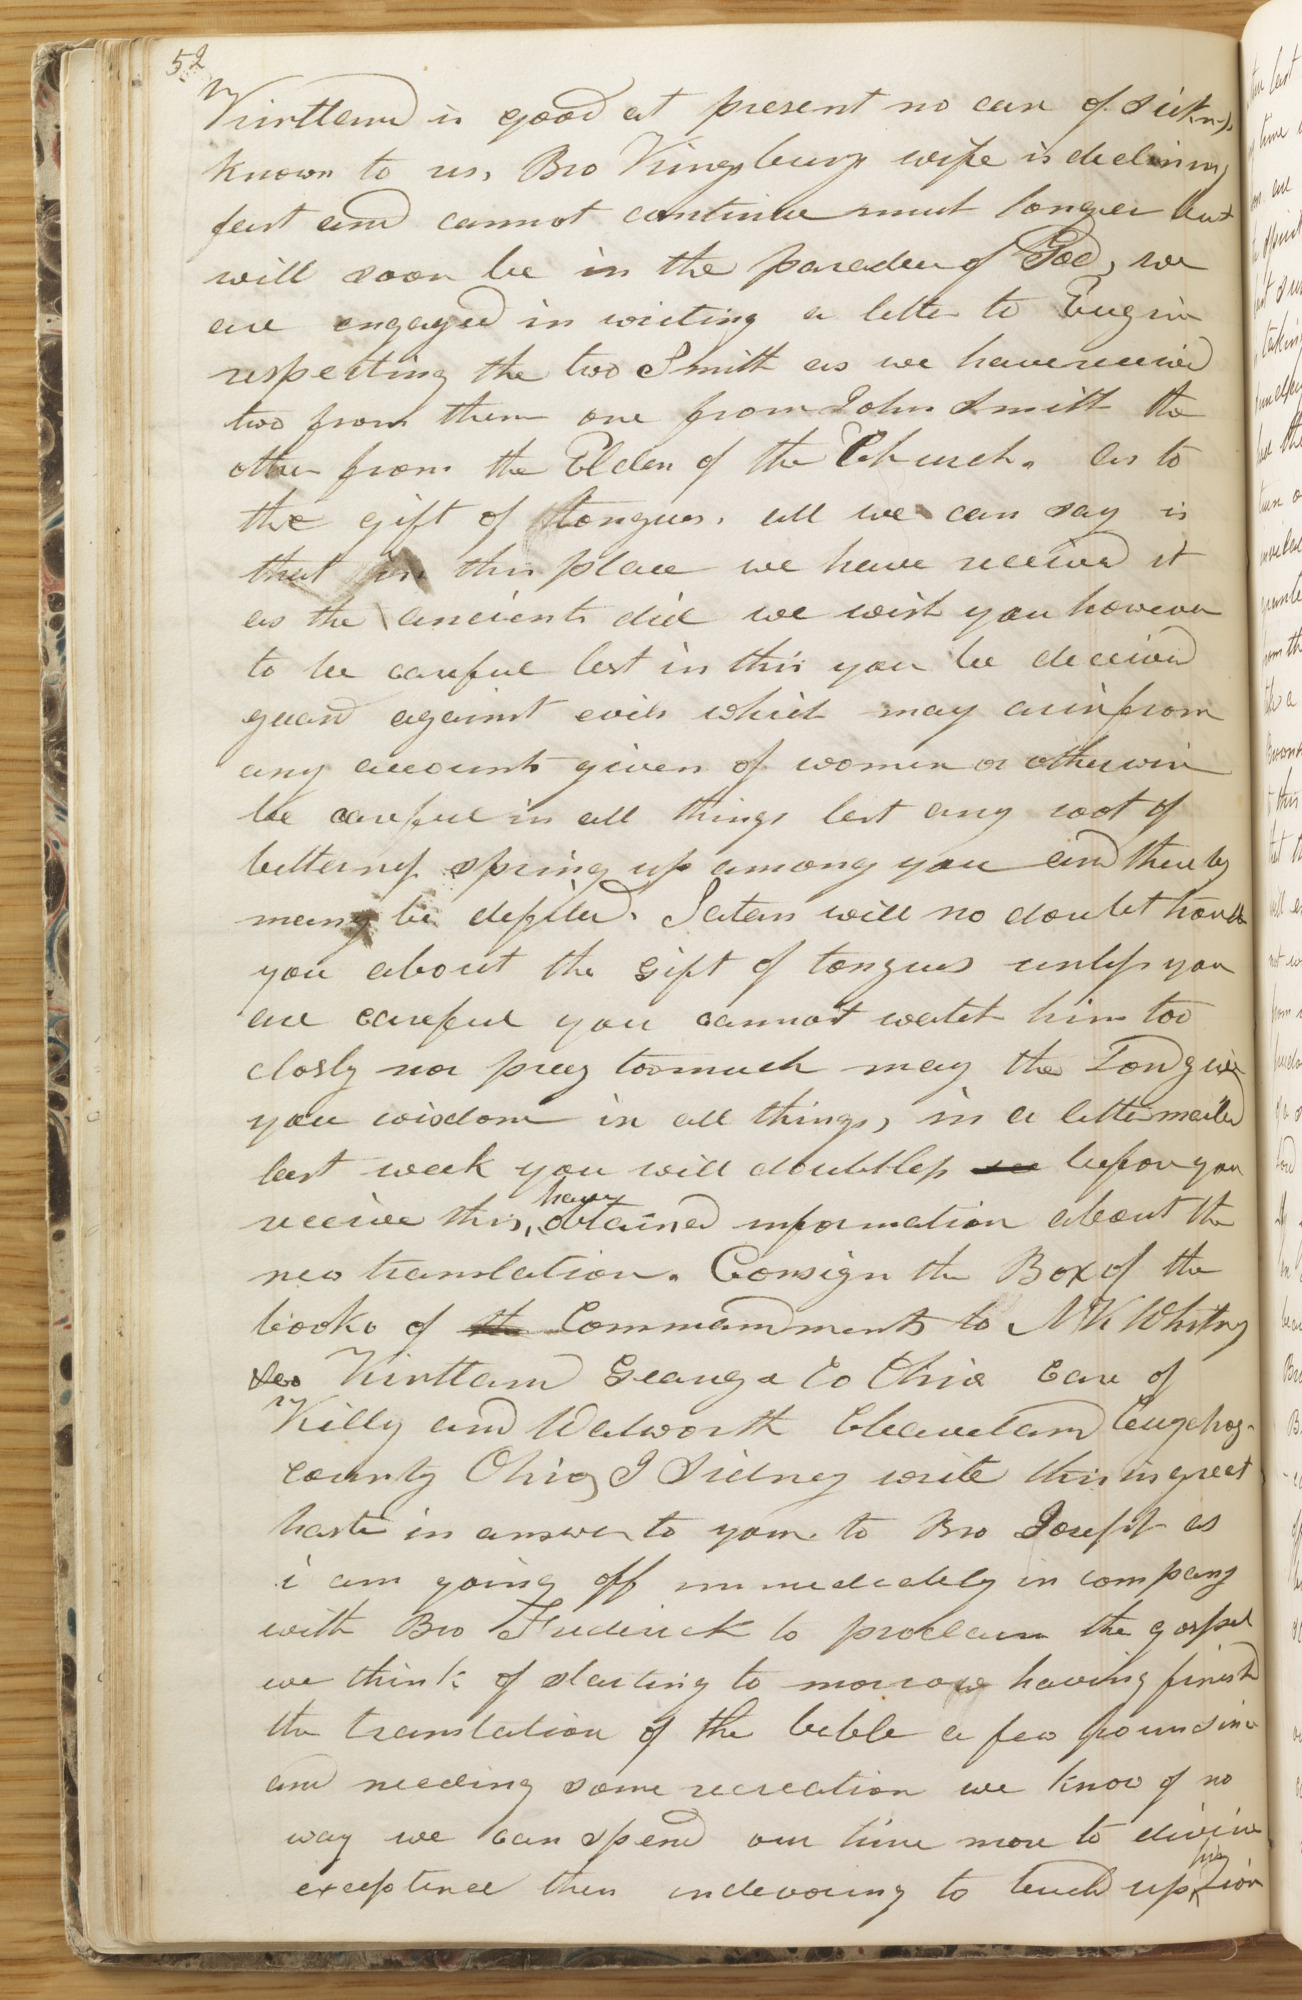 52
Kirtland is good at present no case of sickness
known to us, Bro Kingsburys wife is declining
fast and cannot continue much longer but
will soon be in the paradise of God, we
are engaged in writing a letter to Eugine
respecting the two Smith as we have received
two from them one from John Smith the
other from the Elder of the Church. As to
the gift of tongues, all we can say is
that in this place we have received it
as the ancients did we wish you however
to be careful lest in this you be deceived
guard against evils which may arise from
any accounts given of women or otherwise
be careful in all things lest any root of
bitterness spring up among you and thereby
many be defiled. Satan will no doubt trouble
you about the gift of tongues unless you
are careful you cannot watch him too
closly nor pray too much may the Lord give
you wisdom in all things, in a letter mailed
last week you will doubtless before you
receive this, have obtained information about the
new translation. Consign the Box of the
books of the Commandments to N K Whitney
Kirtland Geauga Co Ohio care of
Killy and Walworth Cleaveland Cuyahoga
county Ohio, I Sidney write this in great
haste in answer to yours to Bro Joseph as
i am going off immediately in company
with Bro Frederick to proclaim the gospel
we think of starting to morrow having finished
the translation of the bible a few hours since
and needing some recreation we know of no
way we can spend our time more to divine
exceptence then indevouring to build up his Zion